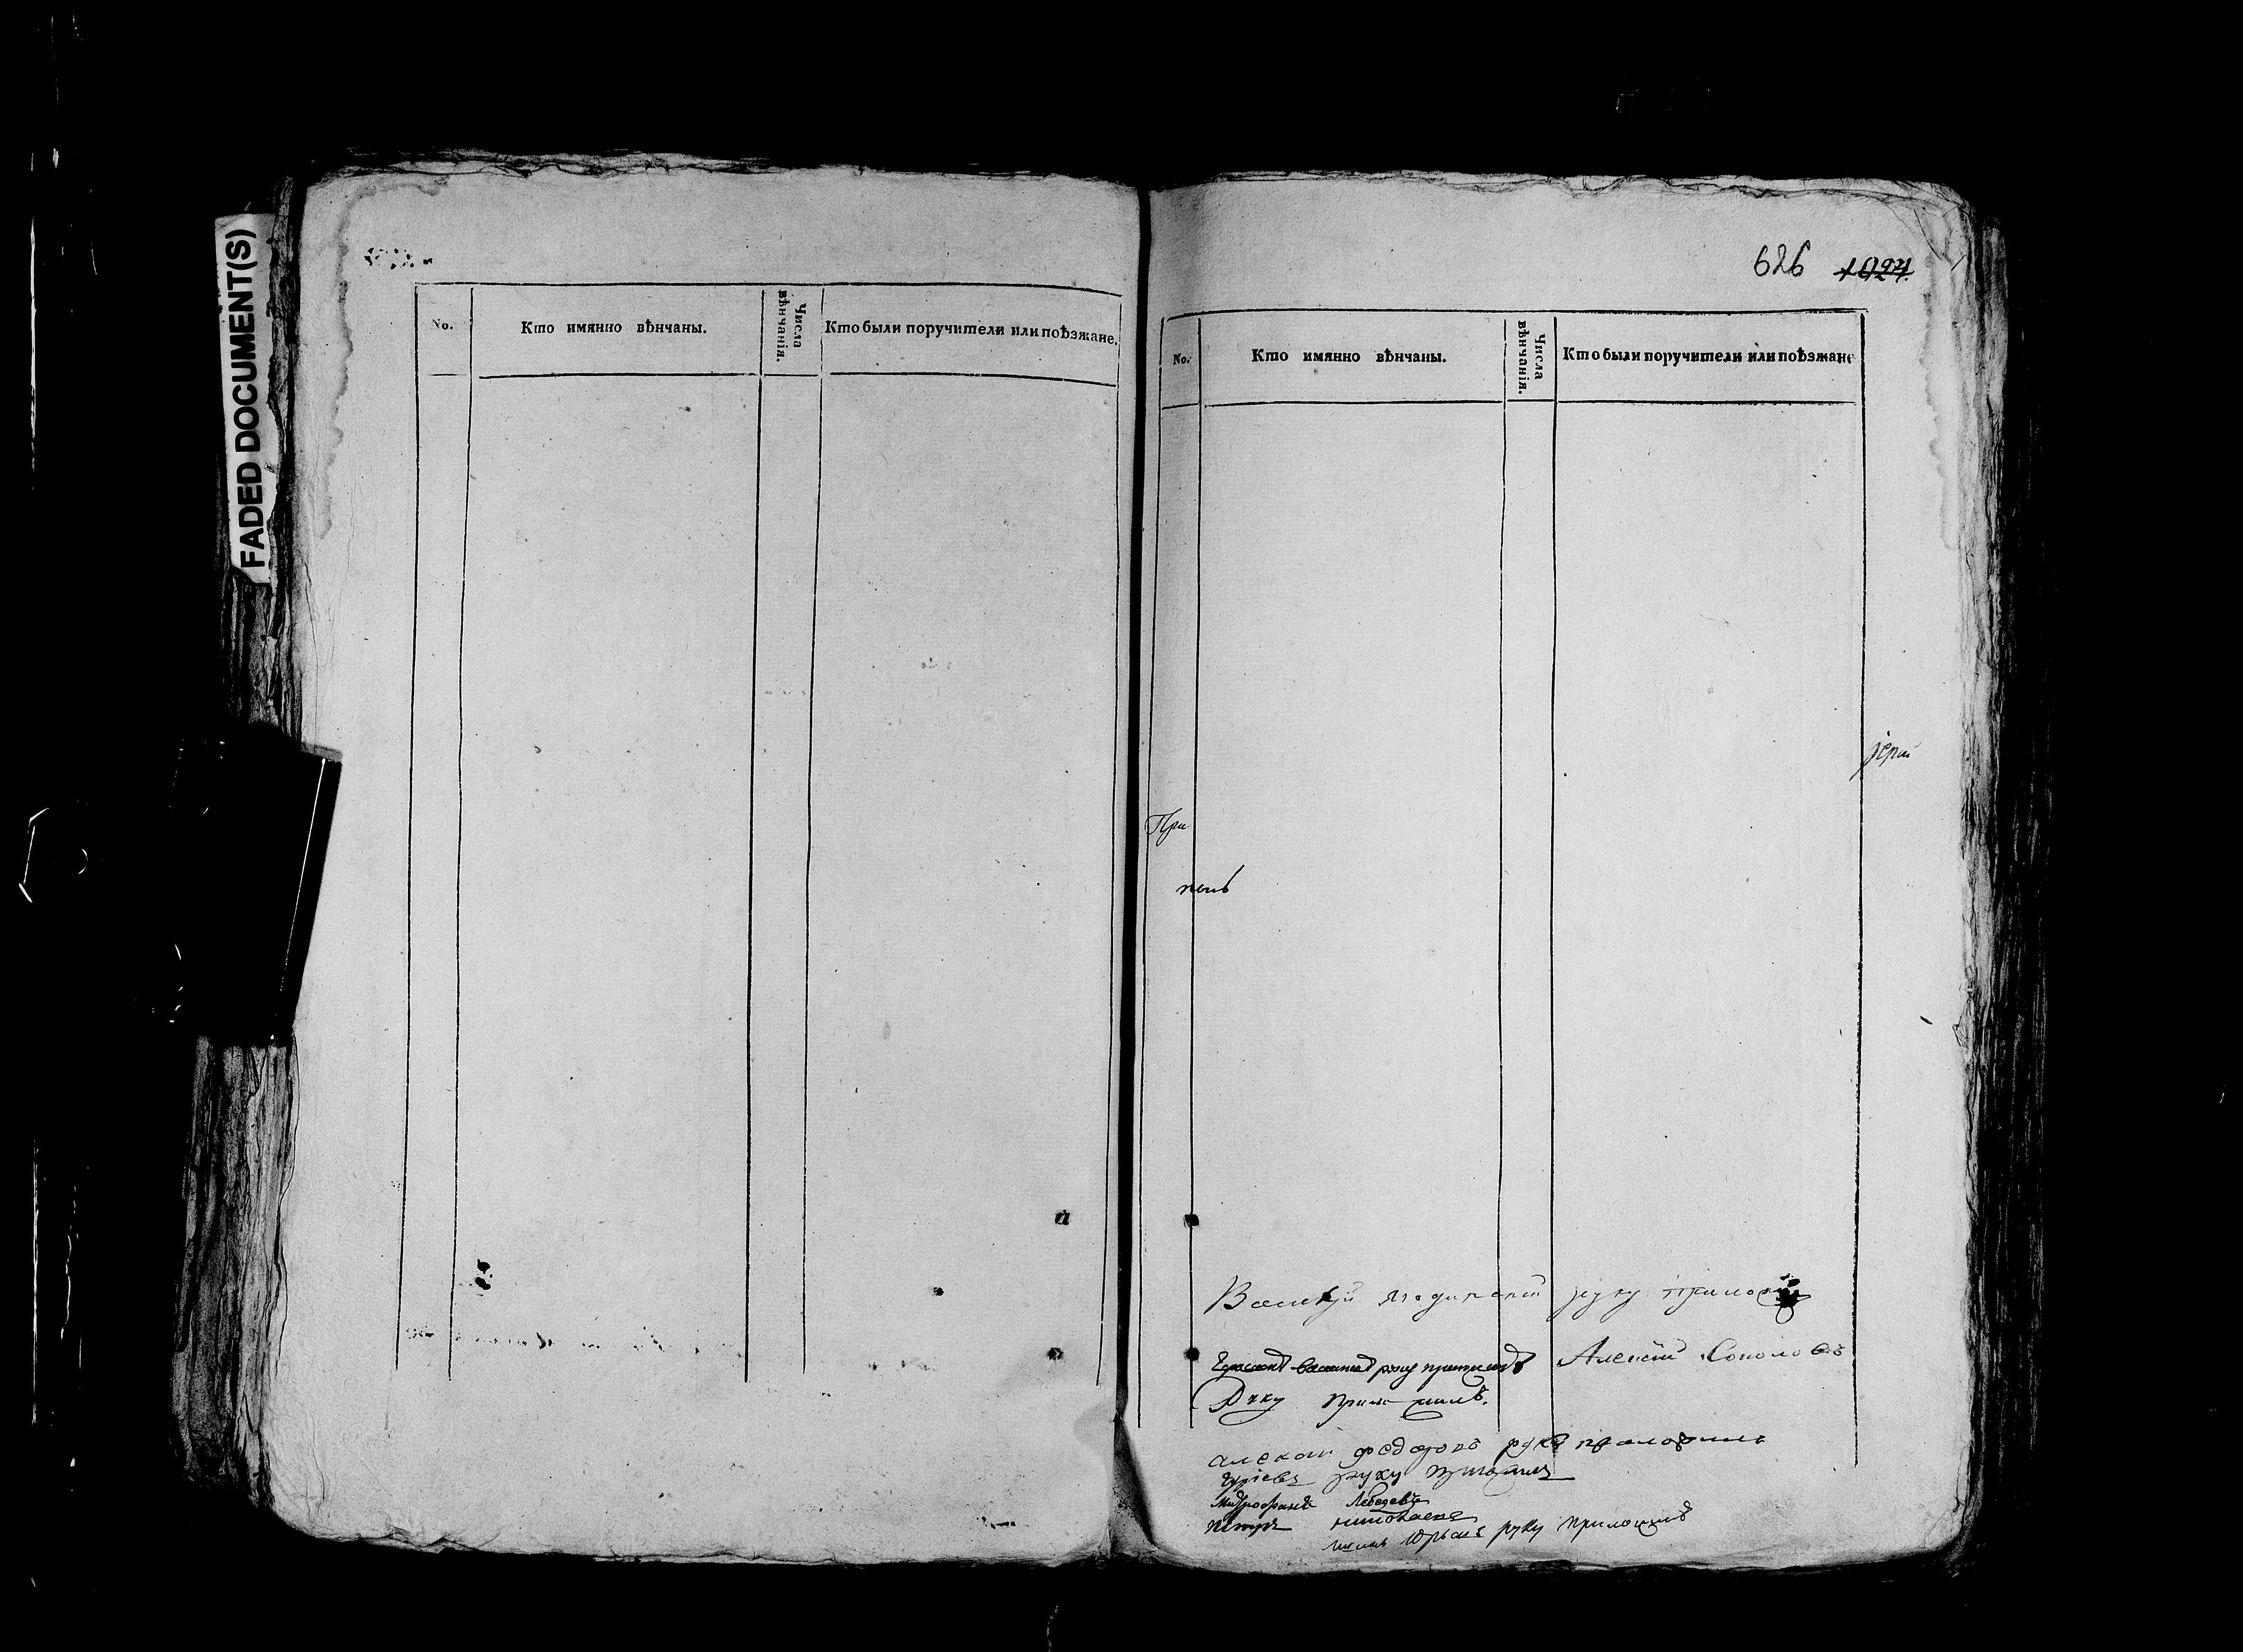 FADED DOCUMENT(S)
No.
Кто имянно вѣнчаны.
Числа вѣнчанія.
Кто были поручители или поѣзжане.
626 1027.
No.
Кто имянно вѣнчаны.
Числа вѣнчанія.
Кто были поручители или поѣзжане
їерей
При
Василій руку
руку Алексій Соколовъ
Руку приложилъ.
алексаи федоровъ руку приложилъ
руку
Митрофанъ Лебедевъ
Петръ
Юрьевъ руку приложилъ